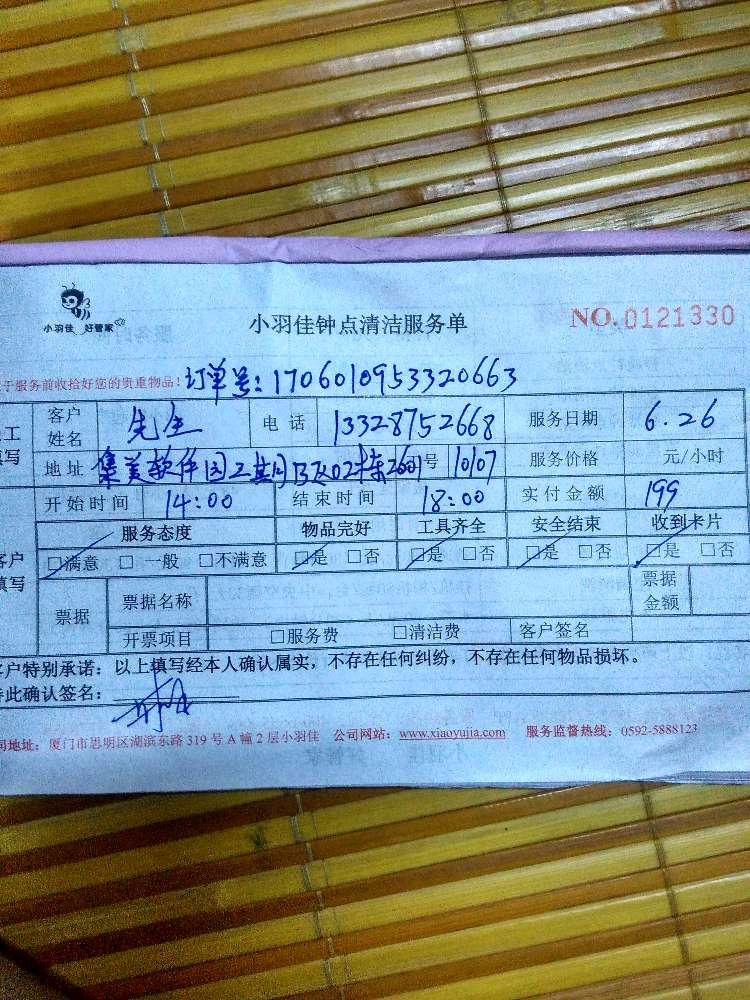 小羽佳 好管家
小羽佳钟点清洁服务单
NO. 0121330
于服务前收拾好您的贵重物品！ 订单号：1706010953320663
工 客户姓名 先生 电 话 13328752668 服务日期 6.26
填写 地 址 集美软件园 号 1007 服务价格 元/小时
开 始 时 间 14:00 结 束 时 间 18:00 实 付 金 额 199
服务态度 物品完好 工具齐全 安全结束 收到卡片
客户填写 □满意 □ 一般 □不满意 □是 □否 □是 □否 □是 □否 □是 □否
票据 票据名称 票据金额
开票项目 □服务费 □清洁费 客户签名
客户特别承诺：以上填写经本人确认属实，不存在任何纠纷，不存在任何物品损坏。
特此确认签名：
司地址：厦门市思明区湖滨东路 319 号 A 幢 2 层小羽佳 公司网站：www.xiaoyujia.com 服务监督热线：0592-5888123